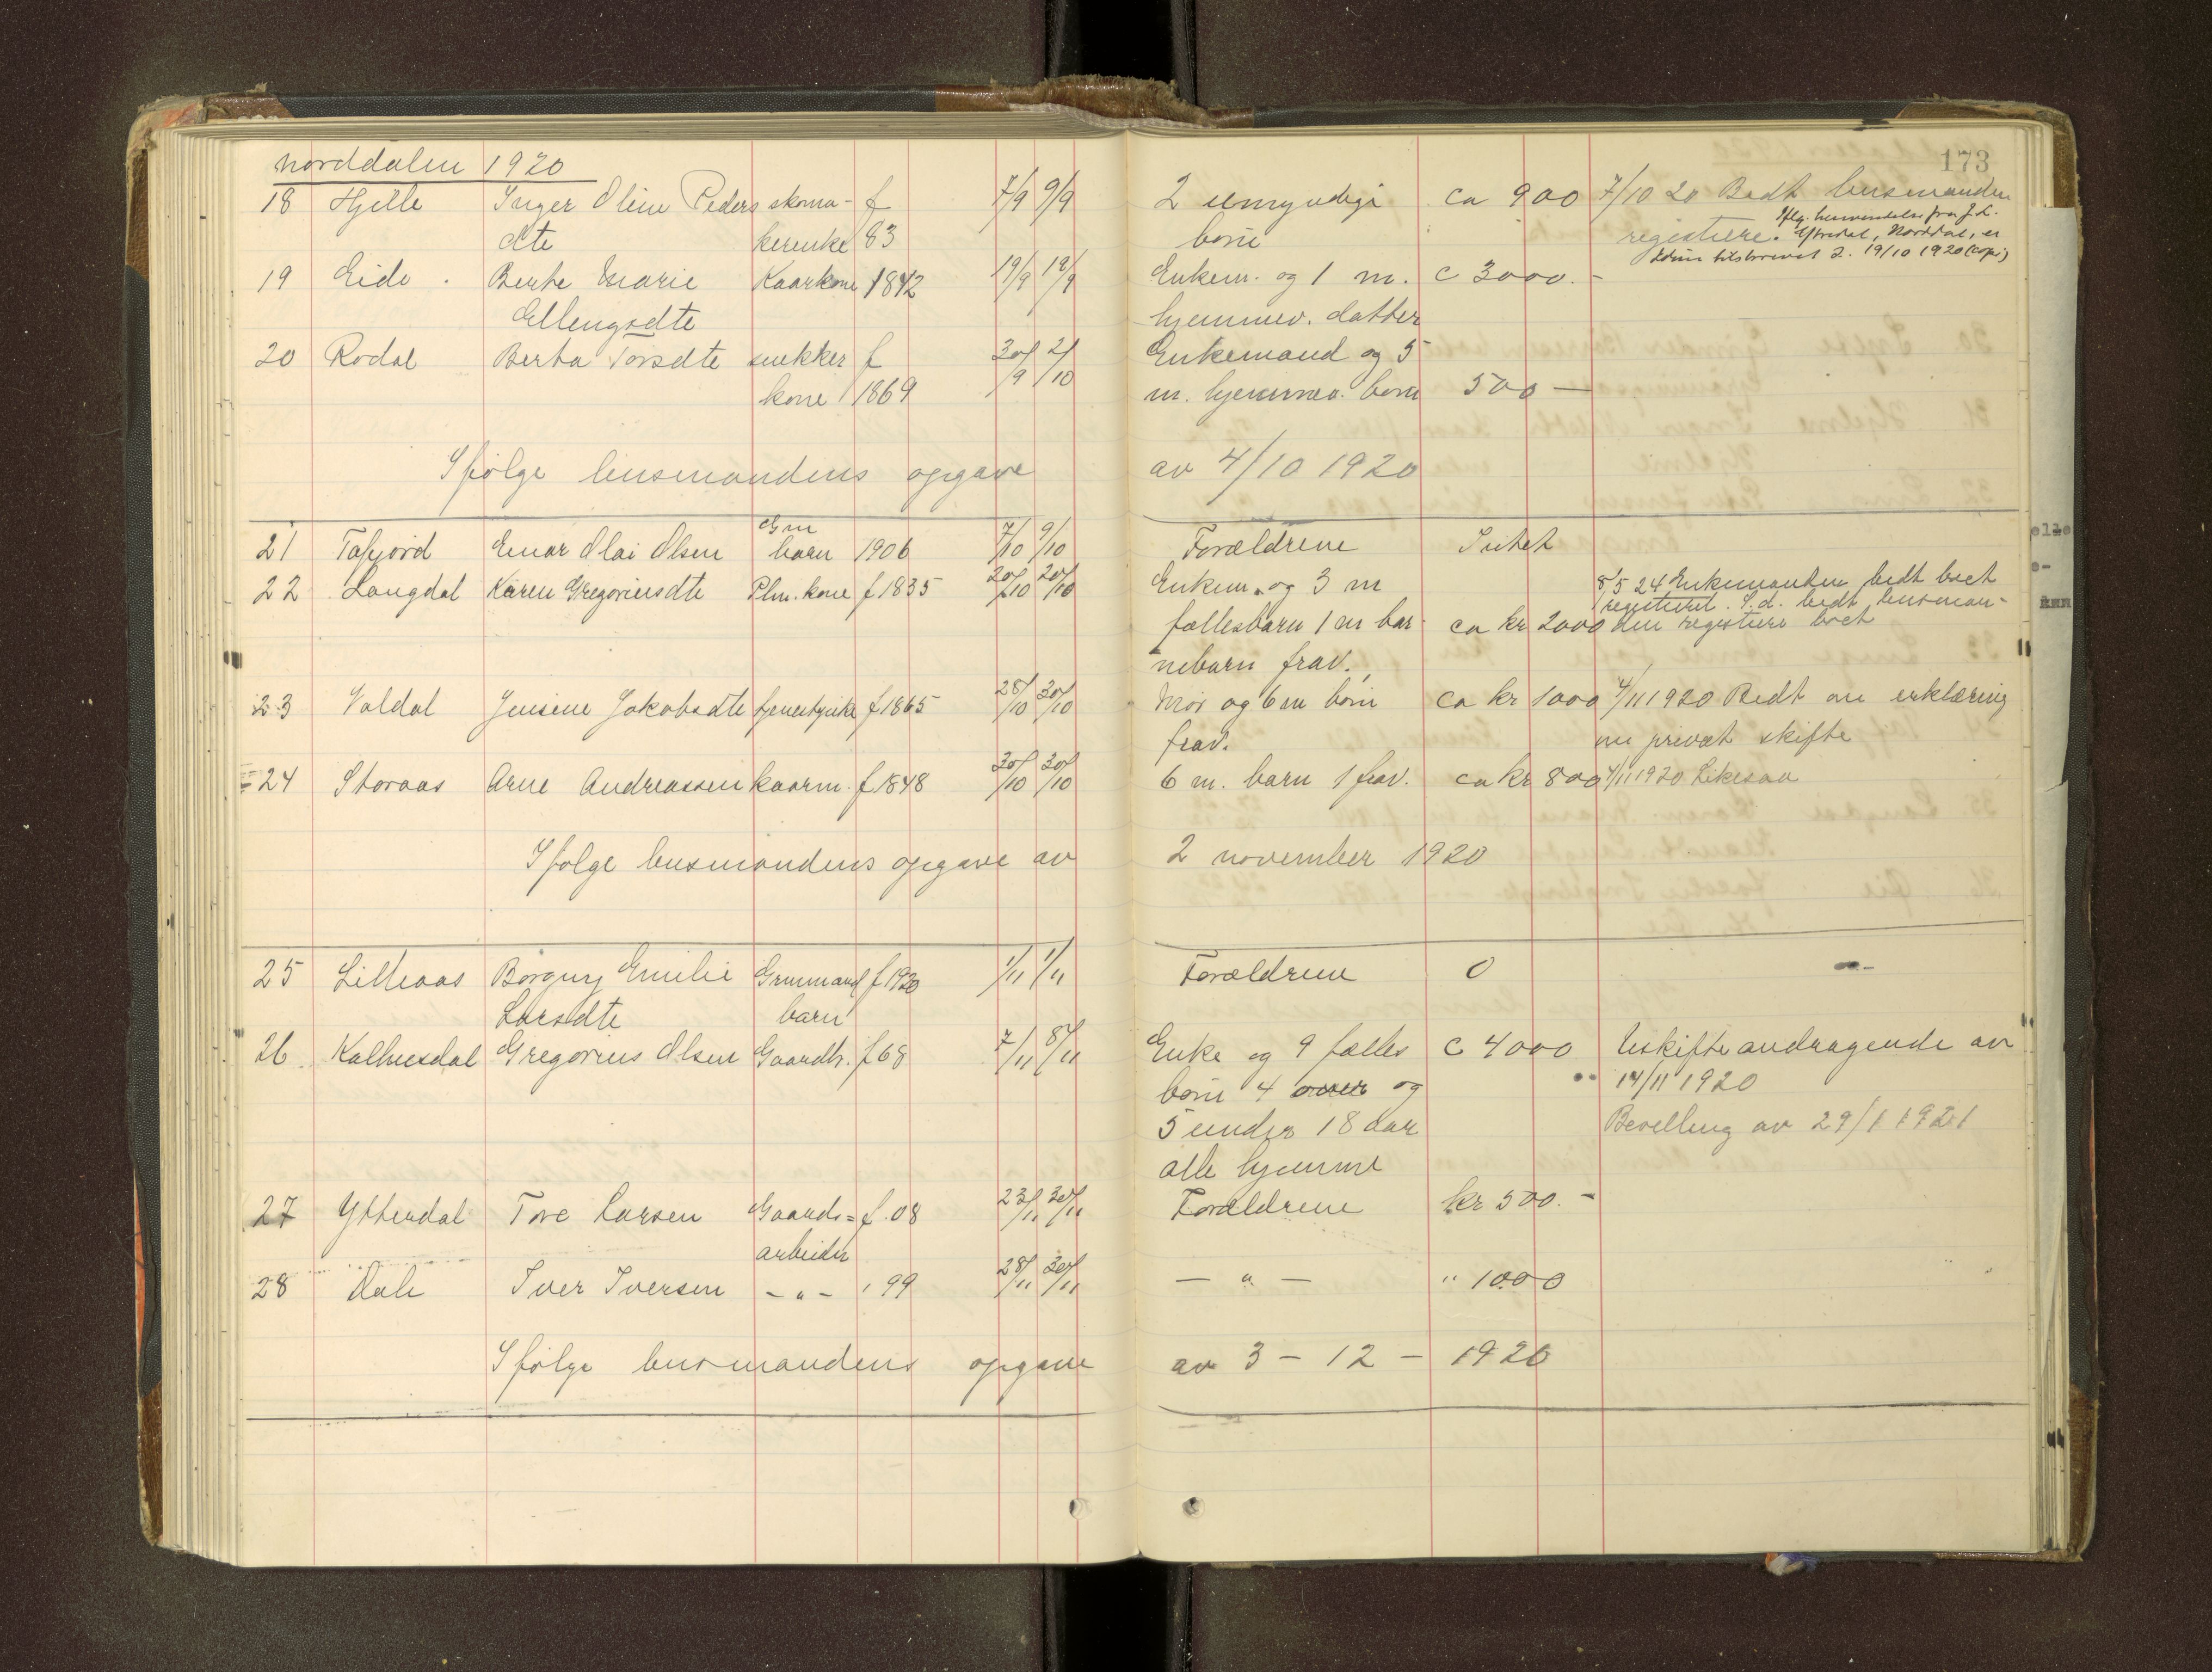 173
Norddalen 1920
18 Hjelle Inger Oline Peders skoma- f 7/9 9/9 2 umyndige ca 900 7/10 20 Bedt lensmanden
dte kerenke 83 børn registrere. Iflg. henvendelse fra J. L.
Ytredal, Norddal, er
tilskrevet d. 19/10 1920 (copi)
19 Eide . Berte Marie Kaarkone 1842 19/9 19/9 Enkem. og 1 m. c 3000.-
Ellengsdte hjemmev. datter
20 Rødal Berta Torsdte snekker f 30/9 2/10 Enkemand og 5
kone 1869 m. hjemmev. børn 500 —
Ifølge lensmandens opgave av 4/10 1920
21 Tafjord Einar Olai Olsen Gm barn 1906 7/10 9/10 Forældrene Intet
22 Langdal Karen Gregoriusdte Plm. kone f 1835 20/10 20/10 Enkem. og 3 m 8/5 24 Enkemanden bedt boet
registreret. S.d. bedt lensman-
fællesbarn 1 m bar- ca kr 2000 den registrere boet
nebarn frav.
23 Valdal Jensine Jakobsdte tjenestpike f 1865 28/10 30/10 Mor og 6 m børn ca kr 1000 4/11 1920 Bedt om erklæring
frav. om privat skifte
24 Storaas Arne Andreassen kaarm. f 1848 30/10 30/10 6 m. barn 1 frav. ca kr 800 4/11 1920 Likesaa
Ifølge lensmandens opgave av 2 november 1920
25 Lilleaas Borgny Emilie Grmmand f 1920 1/11 1/11 Forældrene 0 —
Larsdte barn
26 Kalhusdal Gregorius Olsen Gaardbr. f 68 7/11 8/11 Enke og 9 fælles c 4000 Uskifteandragende av
børn 4 over og 14/11 1920
5 under 18 aar Bevilling av 29/1 1921
alle hjemme
27 Ytterdal Tore Larsen Gaards= f. 08 23/11 30/11 Forældrene kr 500.-
arbeider
28 Dale Iver Iversen - " - , 99 28/11 30/11 — " — " 1000
Ifølge lensmandens opgave av 3 - 12 - 1920